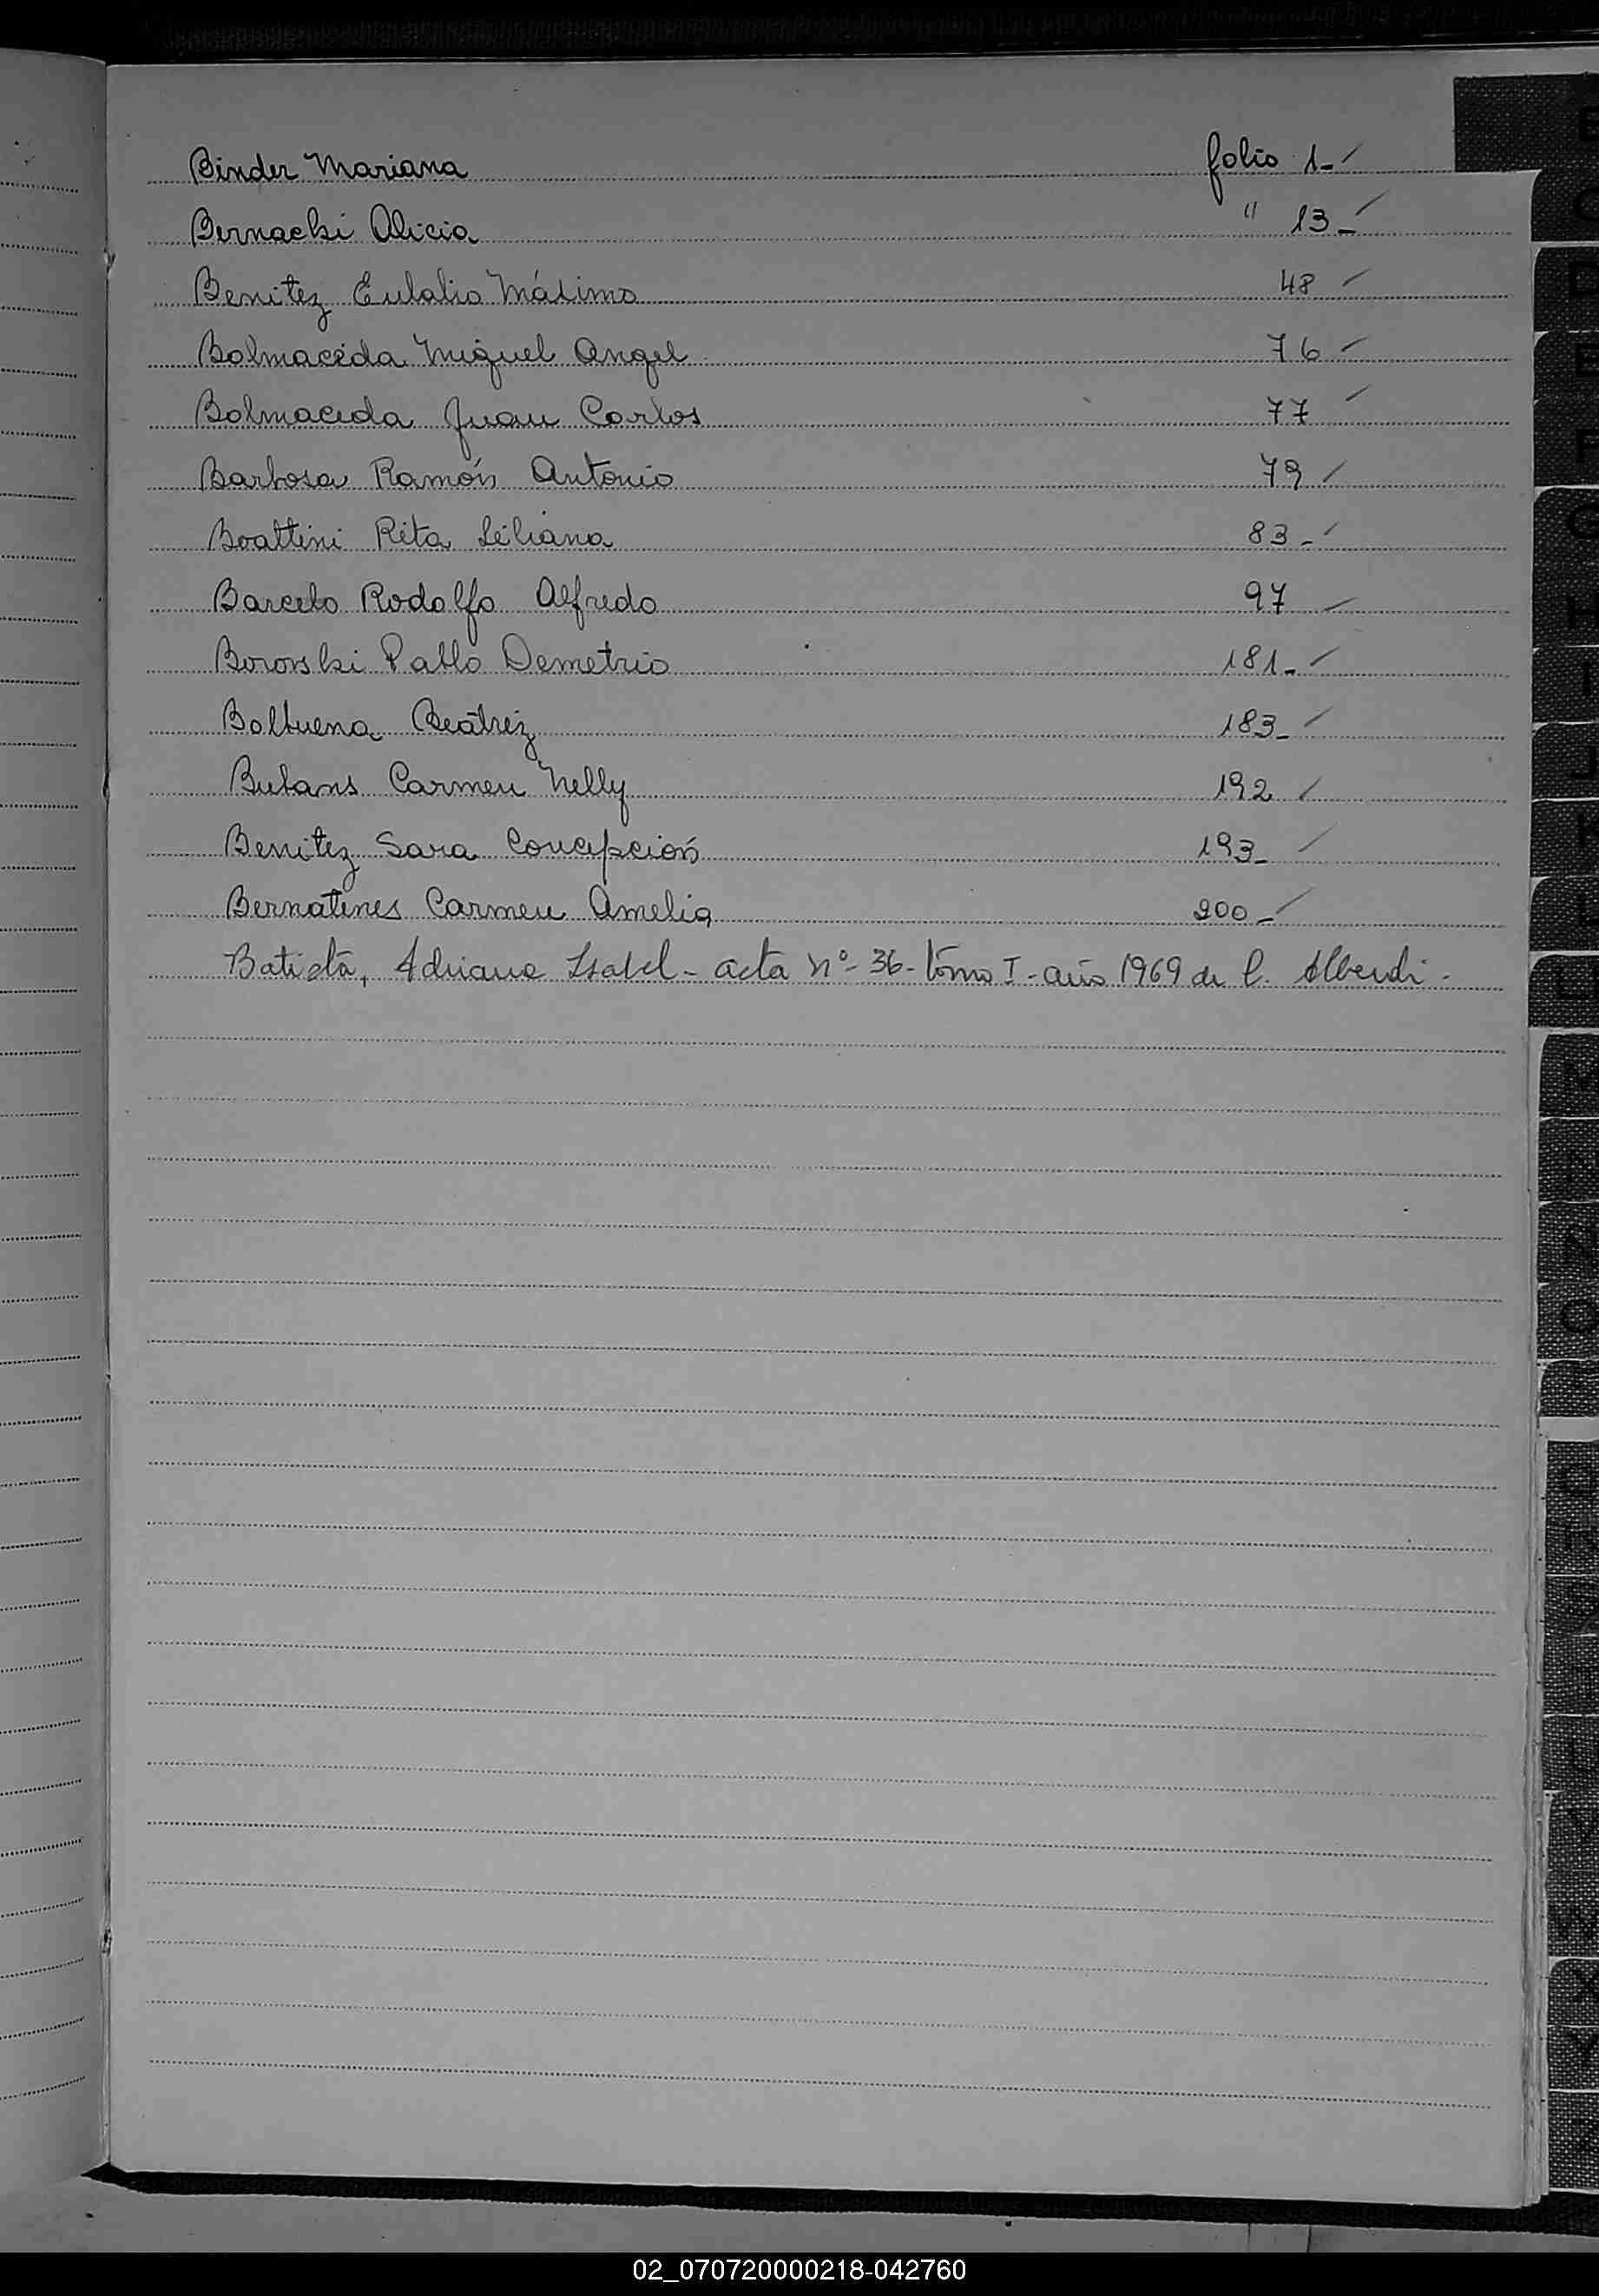 Binder Mariana folio 1-
Bernacki Alicia " 13-
Benitez Eulalio Máximo 48
Balmaceda Miguel Angel 76
Balmaceda Juan Carlos 77
Barbosa Ramón Antonio 79
Boattini Rita Liliana 83-
Barcelo Rodolfo Alfredo 97
Borowski Pablo Demetrio 181-
Balbuena Beatriz 183-
Bubans Carmen Nelly 192
Benitez Sara Concepción 193-
Bernatenes Carmen Amelia 200-
Batista, Adriana Isabel - acta nº - 36 - tomo I - año 1969 de C. Alberdi -
B
C
D
E
F
G
H
I
J
K
L
LL
M
N
Ñ
O
P
Q
R
S
T
U
V
W
X
Y
Z
02_070720000218-042760